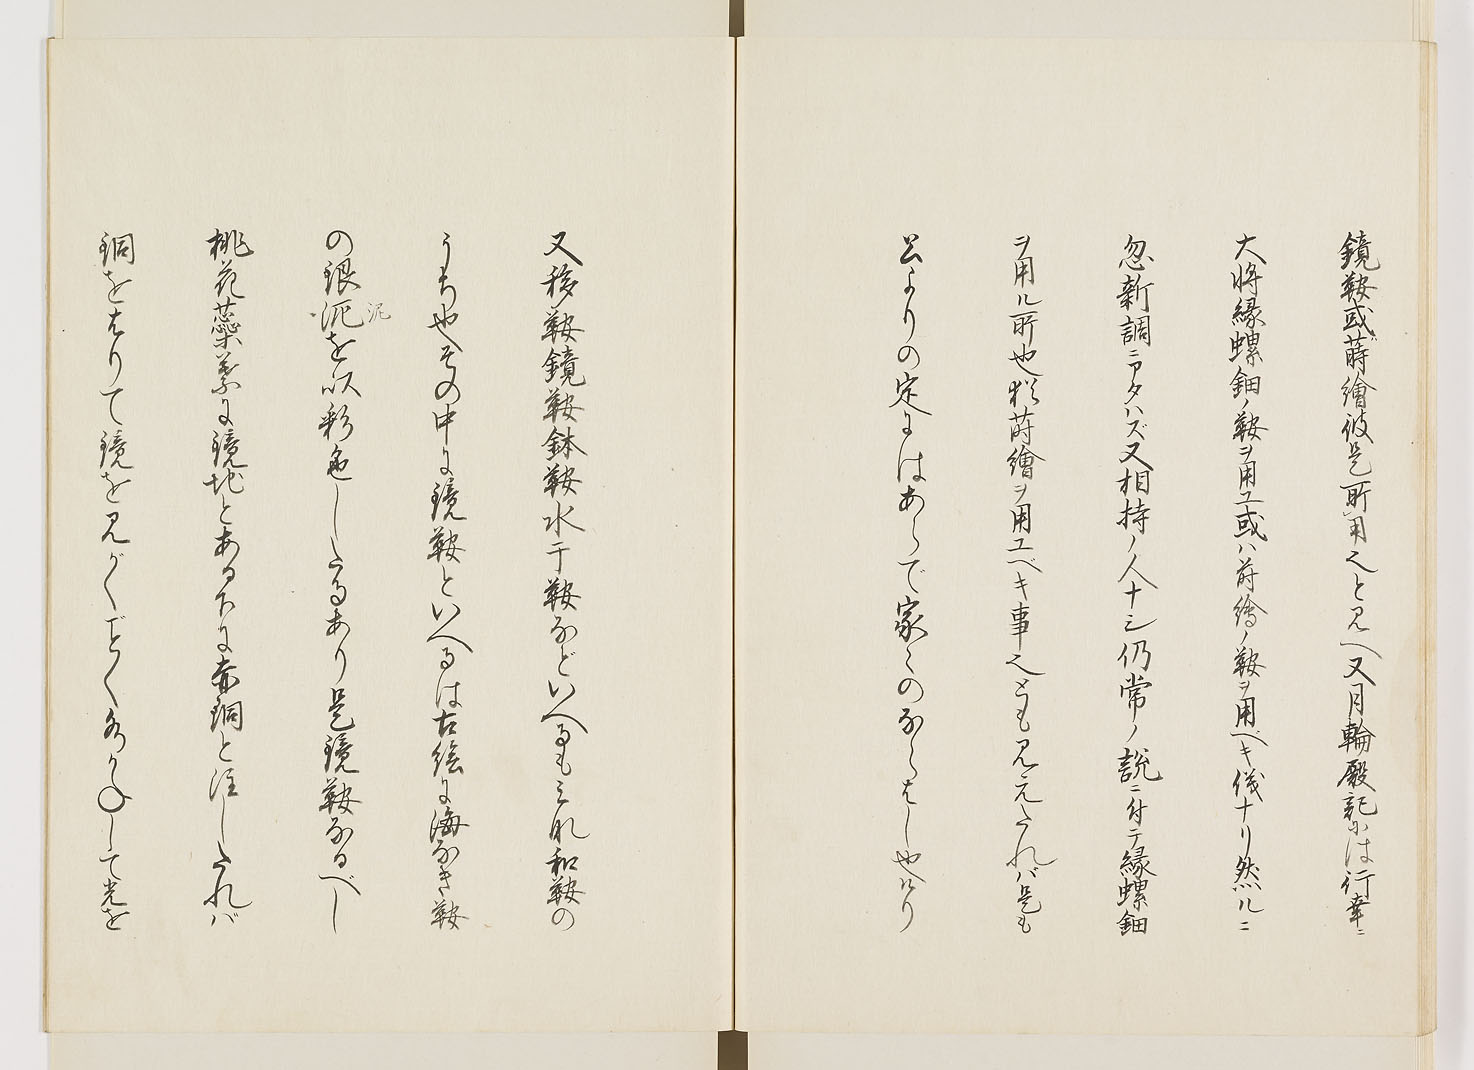 鏡鞍或蒔繪彼是所用之と見へ又月輪殿記には行幸ニ
大将縁螺鈿ノ鞍ヲ用ユ或ハ蒔繪ノ鞍ヲ用ベキ儀ナリ然ルニ
忽新調ニアタハズ又相持ノ人ナシ仍常ノ說ニ付テ縁螺鈿
ヲ用ル所也猶蒔繪ヲ用ユベキ事之とも見えたれバ是も
公よりの定にはあらで家々のならはし也けり
又移鞍鏡鞍鉢鞍水干鞍などいへるもみな和鞍の
うち也その中に鏡鞍といへるは古絵に海なき鞍
の銀泥を以彩色したるあり是鏡鞍なるべし
泥
桃花蘂葉に鏡地とある下に赤銅と注したれバ
銅をはりて鏡を見がくごとく して光を